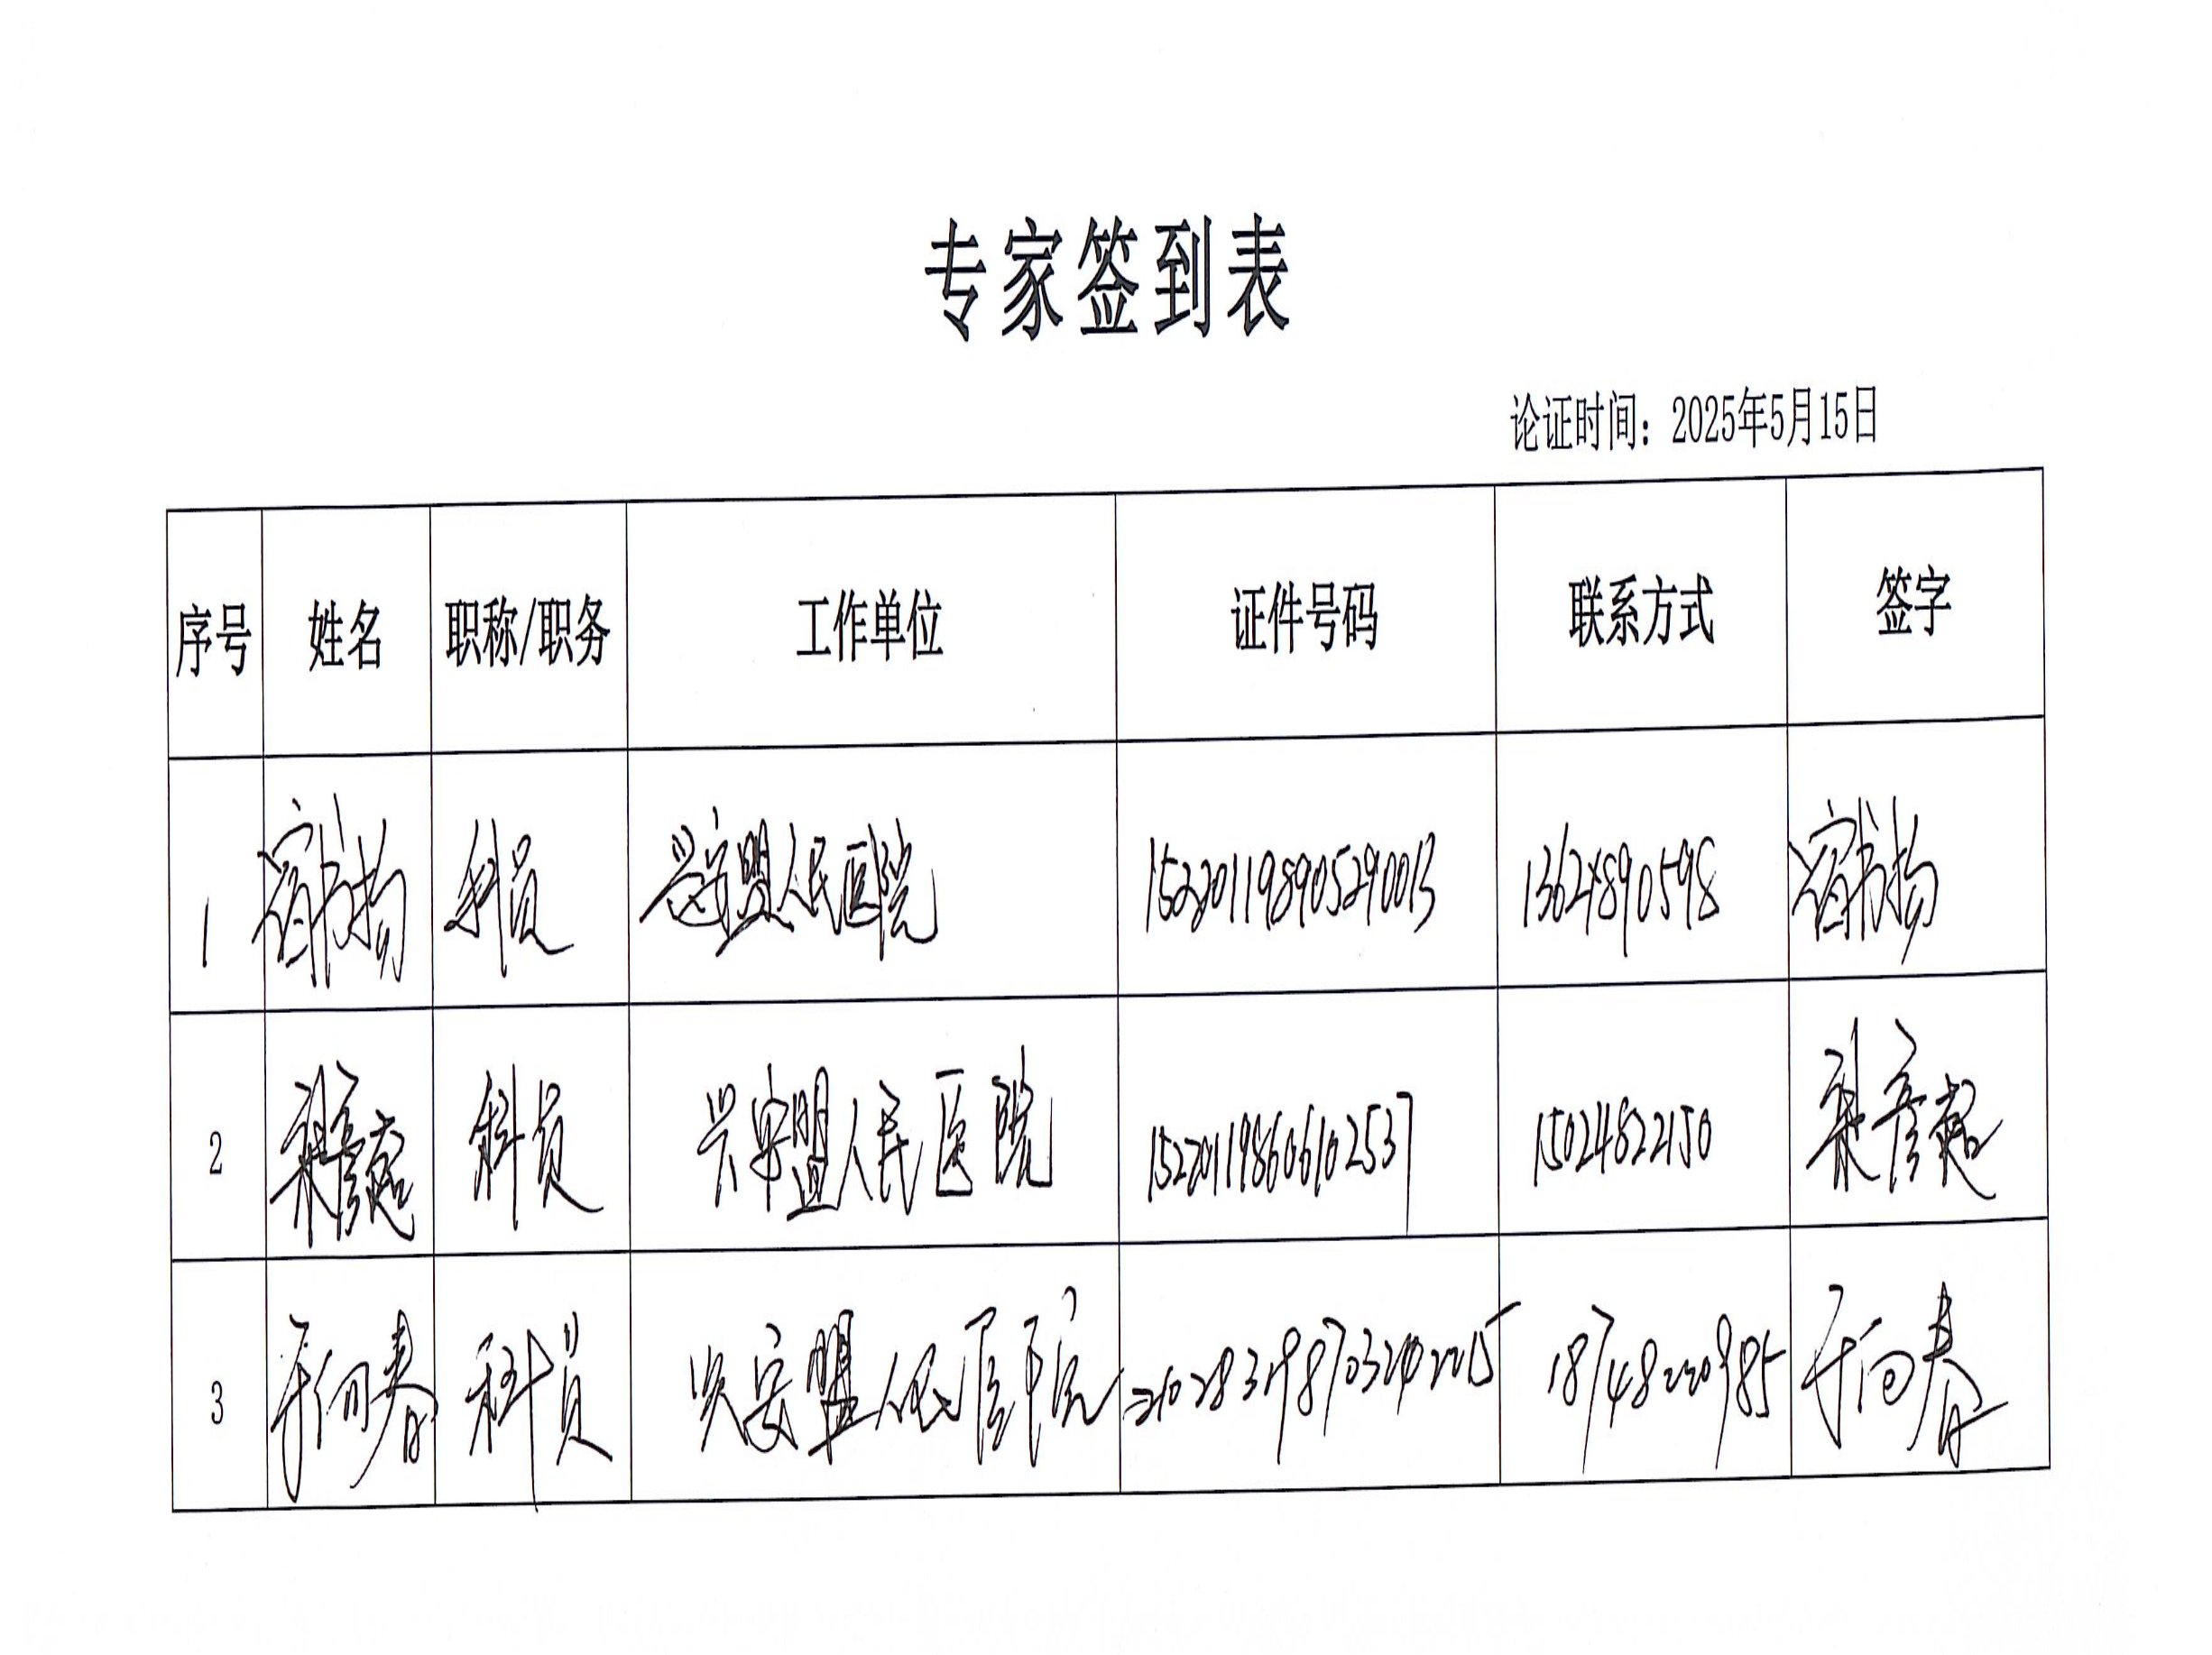 专家签到表
论证时间：2025年5月15日
序号 姓名 职称/职务 工作单位 证件号码 联系方式 签字
1 科员 兴安盟人民医院 152201198905290013 13624890598
2 科员 兴安盟人民医院 15024822150
3 于向春 科员 兴安盟人民医院 18748220985 于向春